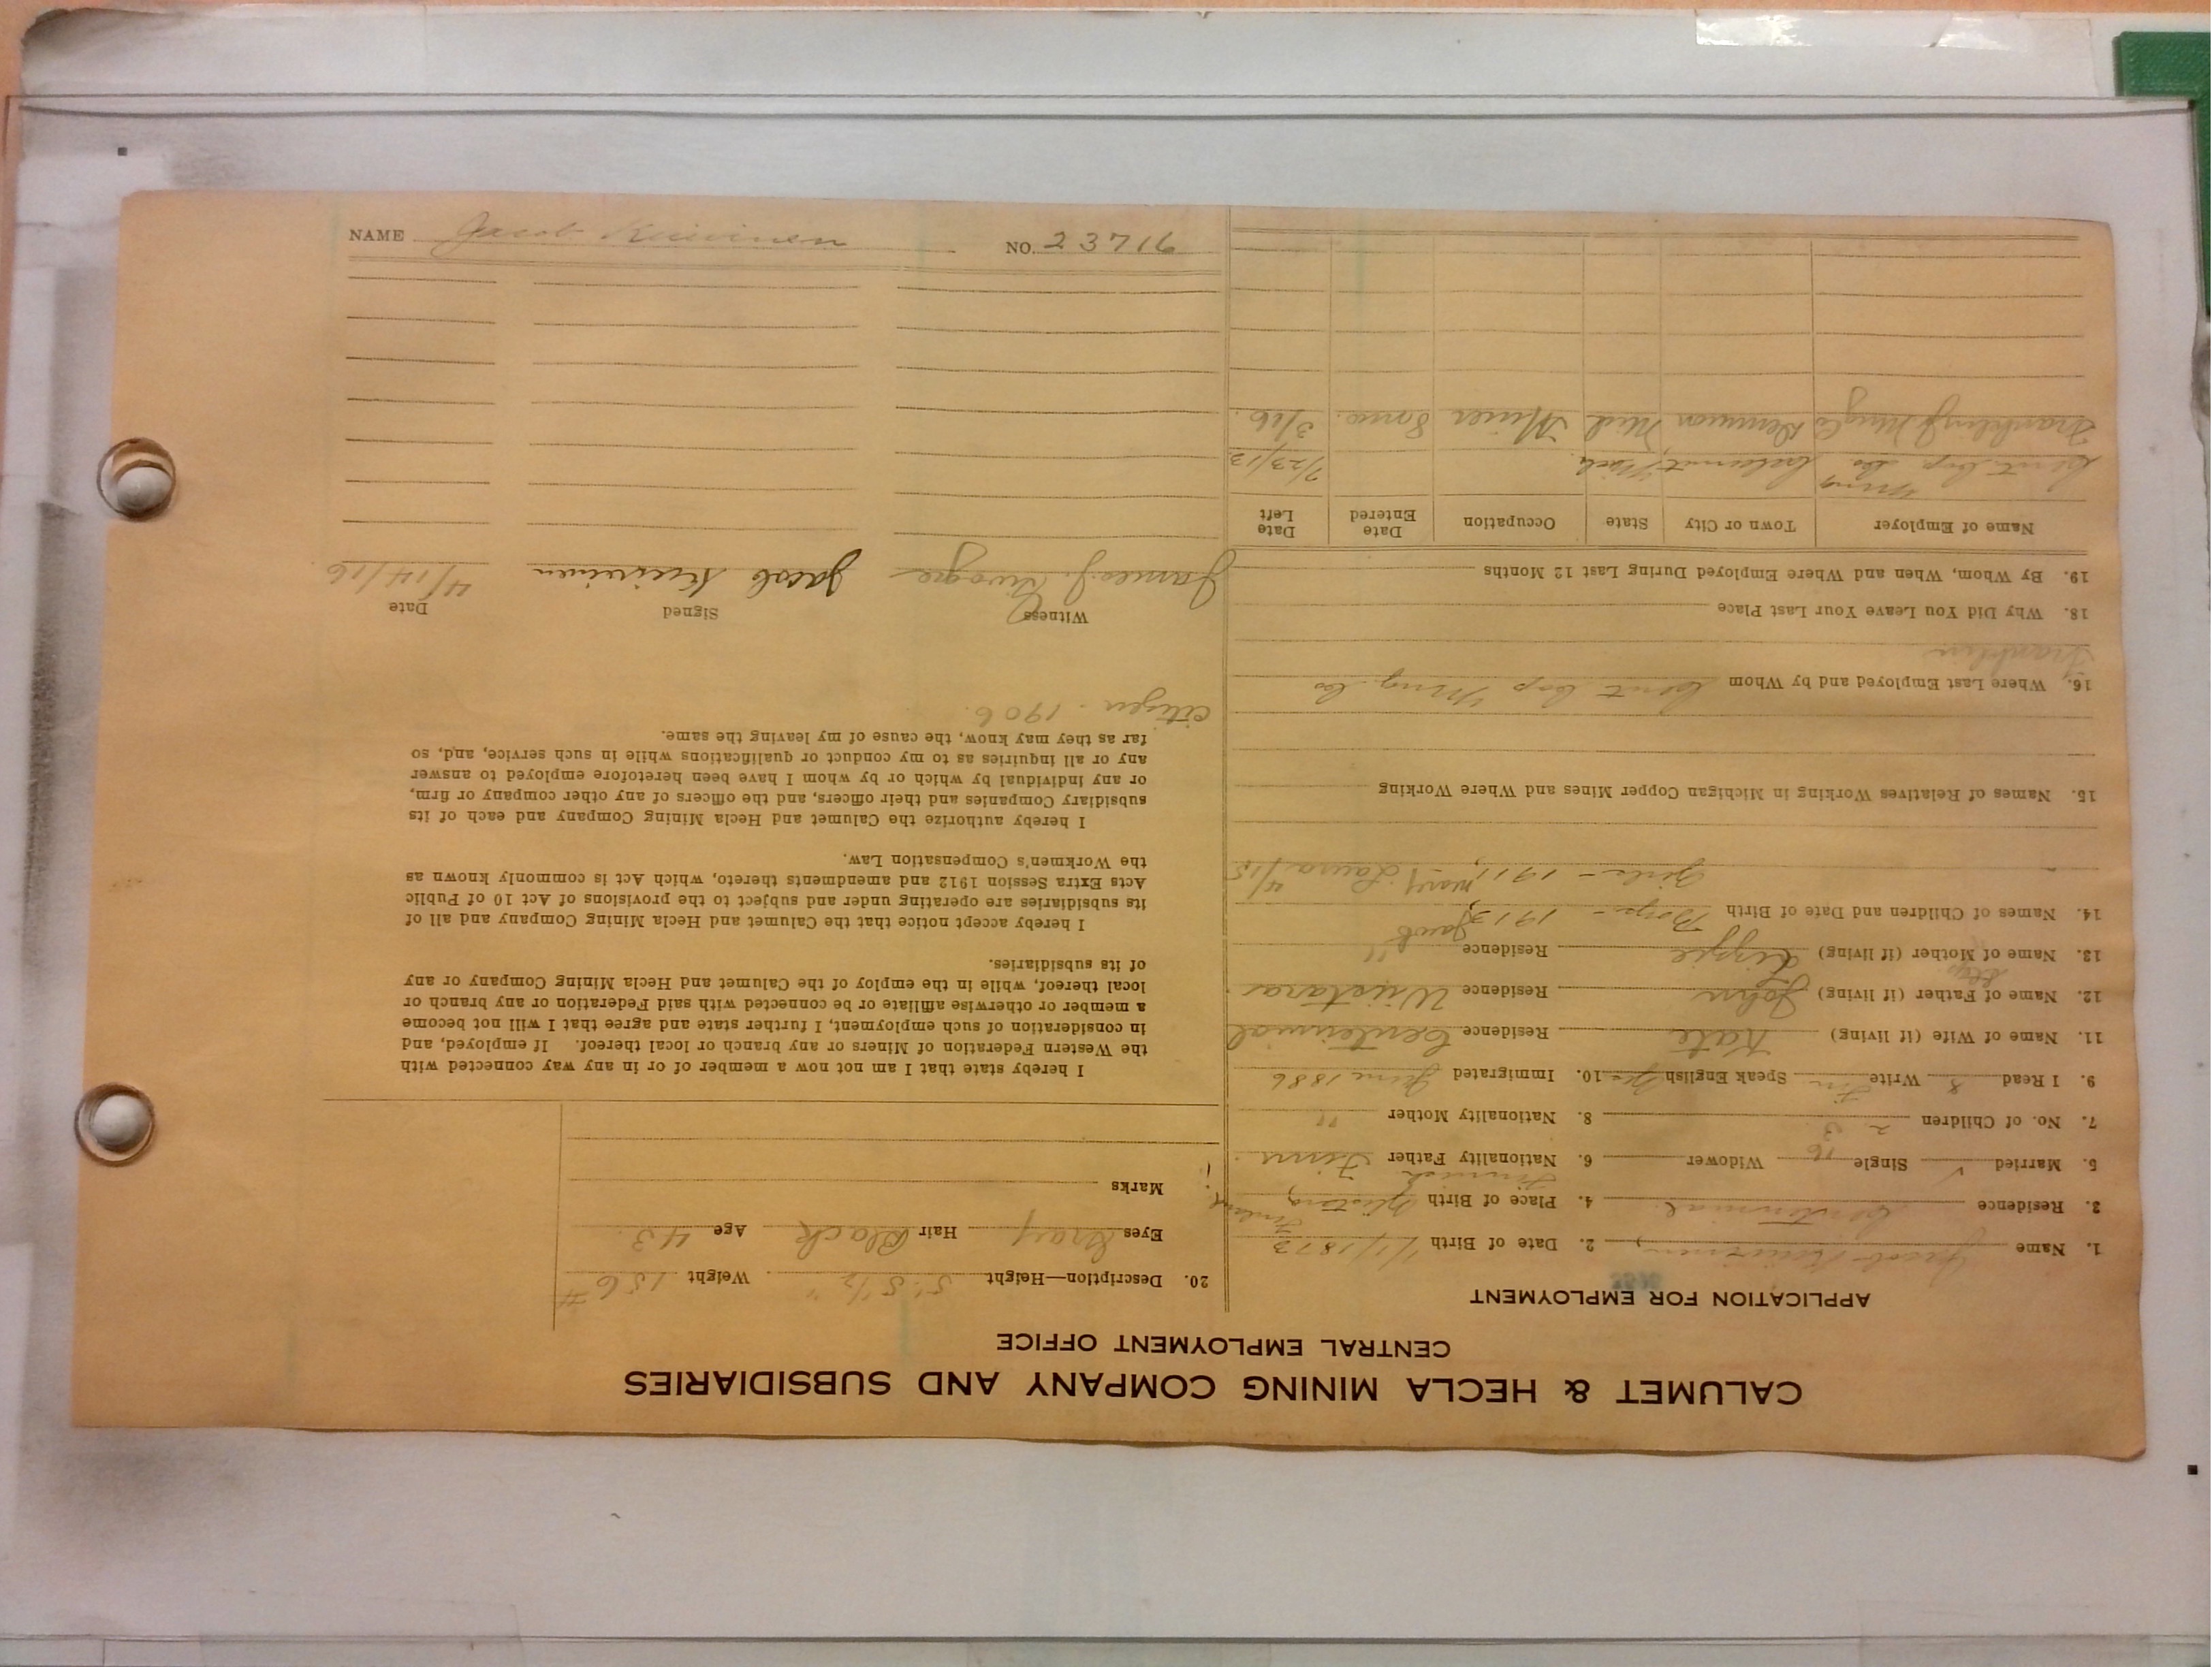 CALUMET & HECLA MINING COMPANY AND SUBSIDIARIES
CENTRAL EMPLOYMENT OFFICE
APPLICATION FOR EMPLOYMENT
1. Name Jacob 2. Date of Birth 1/1/1873
3. Residence Centennial 4. Place of Birth
Finnish
5. Married ✓ Single Widower 6. Nationality Father Finn
16
7. No. of Children 2 3 8. Nationality Mother "
9. I Read & Write Fin Speak English Yes 10. Immigrated June 1886
11. Name of Wife (if living) Kate Residence Centennial
12. Name of Father (if living) John Residence
Step
13. Name of Mother (if living) Lizzie Residence "
Jacob
14. Names of Children and Date of Birth Boys - 1913,
Girls - 1911, Mary Laura 4/15
15. Names of Relatives Working in Michigan Copper Mines and Where Working
16. Where Last Employed and by Whom Cent Cop Mng. Co
Franklin
18. Why Did You Leave Your Last Place
19. By Whom, When and Where Employed During Last 12 Months
Name of Employer Town or City State Occupation Date Entered Date Left
Cent. Cop. Mng Co Calumet, Mich. 7/23/13
Franklin Mng Co Demmon Mich Miner 8 mos. 3/16.
20. Description—Height 5' 5 1/2" Weight 156 #
Eyes Gray Hair Black Age 43.
Marks
I hereby state that I am not now a member of or in any way connected with
the Western Federation of Miners or any branch or local thereof. If employed, and
in consideration of such employment, I further state and agree that I will not become
a member or otherwise affiliate or be connected with said Federation or any branch or
local thereof, while in the employ of the Calumet and Hecla Mining Company or any
of its subsidiaries.
I hereby accept notice that the Calumet and Hecla Mining Company and all of
its subsidiaries are operating under and subject to the provisions of Act 10 of Public
Acts Extra Session 1912 and amendments thereto, which Act is commonly known as
the Workmen's Compensation Law.
I hereby authorize the Calumet and Hecla Mining Company and each of its
subsidiary Companies and their officers, and the officers of any other company or firm,
or any individual by which or by whom I have been heretofore employed to answer
any or all inquiries as to my conduct or qualifications while in such service, and, so
far as they may know, the cause of my leaving the same.
Citizen. 1906.
Witness Signed Date
James J. Jacob 4/14/16.
NAME Jacob NO. 23716